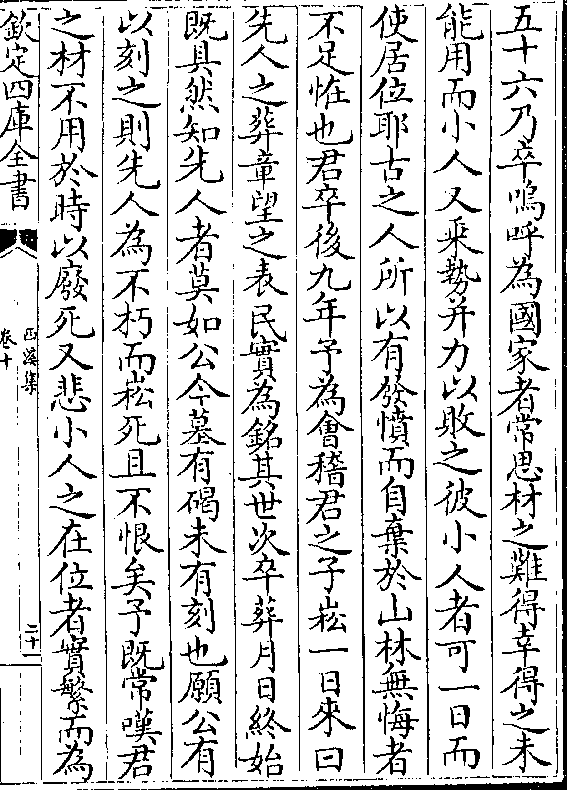 五十六乃卒嗚呼為國家者常思材之難得幸得之未
能用而小人又乘勢并力以敗之彼小人者可一日而
使居位耶古之人所以有發憤而自棄於山林無悔者
不足怪也君卒後九年予為會稽君之子崧一日來曰
先人之葬章望之表民實為銘其世次卒葬月日終始
既具然知先人者莫如公今墓有碣未有刻也願公有
以刻之則先人為不朽而崧死且不恨矣予既常嘆君
之材不用於時以廢死又悲小人之在位者實繁而為
欽定四庫全書
西溪集
卷十
二十